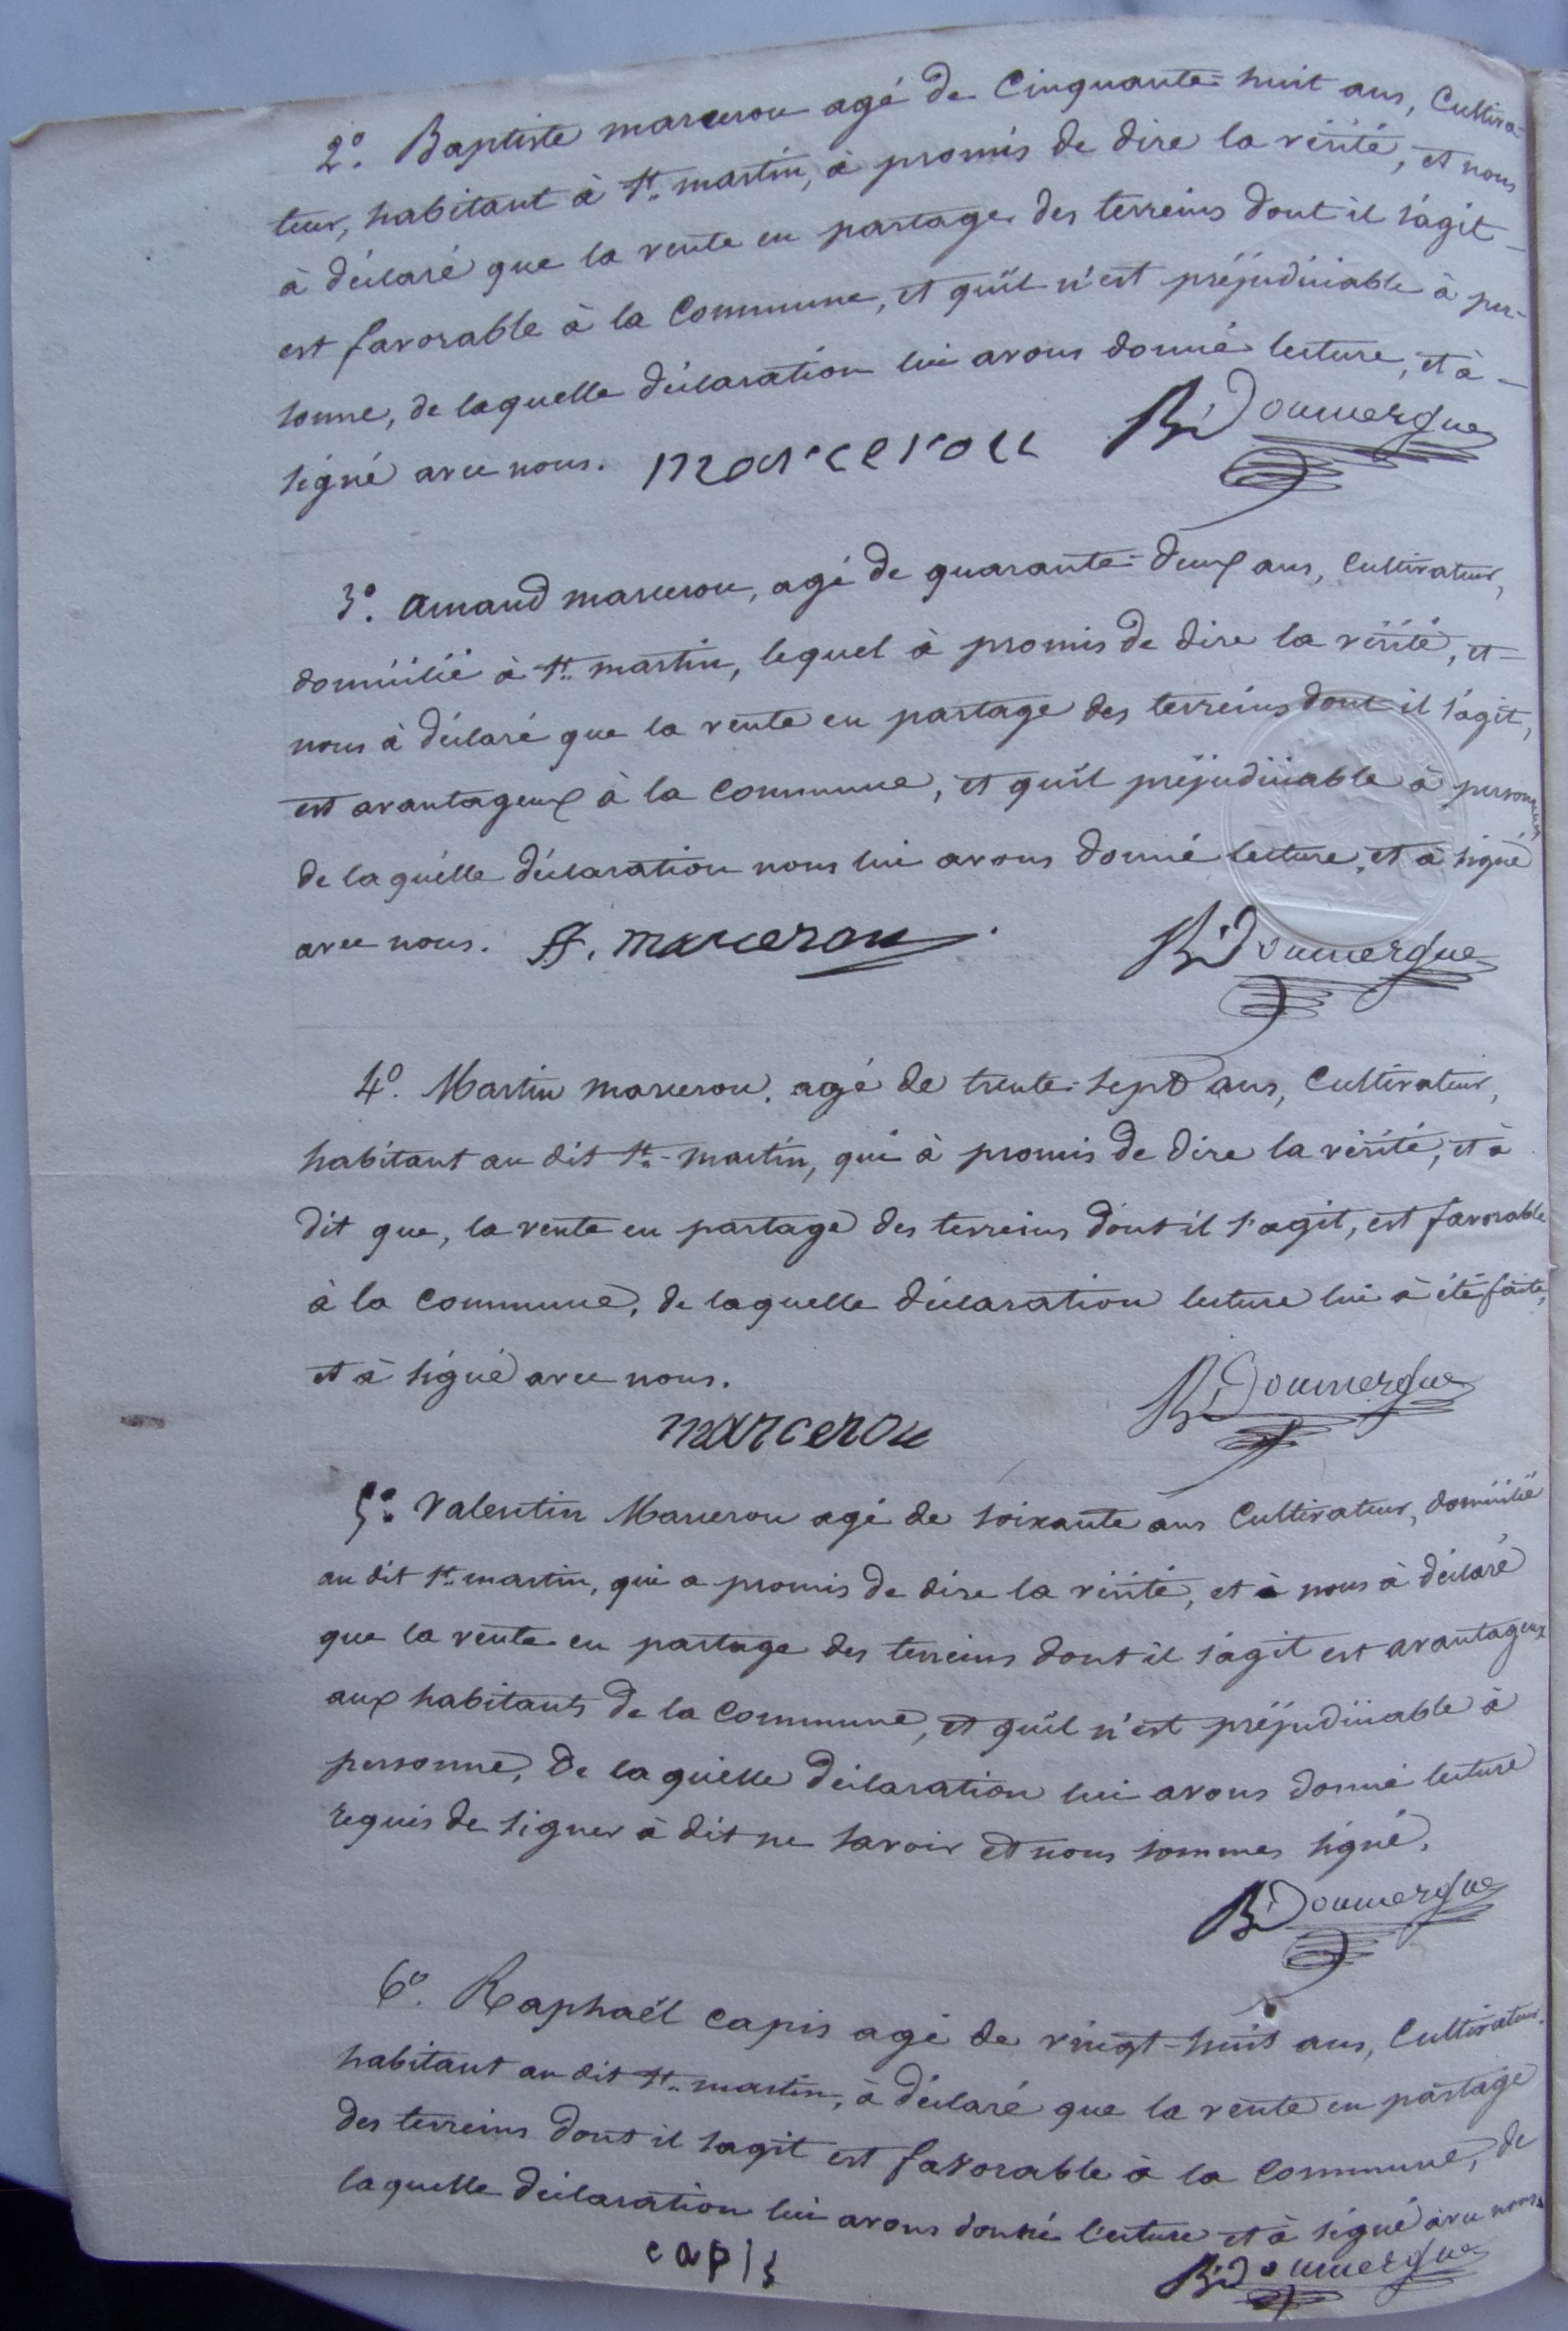 2.° Baptiste marcerou agé de Cinquante-huit ans, Cultiva-
teur, habitant à St. martin, à promis de dire la vérité, et nous
à déclaré que la vente en partage des terreins dont il s'agit
est favorable à la Commune, et qu'il n'est préjudiciable à per-
sonne, de laquelle déclaration lui avons donné lecture, et à
signé avec nous. marcerou Bi Doumergue
3.° Amand marcerou, agé de quarante-deux ans, Cultivateur,
domicilié à St. martin, lequel à promis de dire la vérité, et
nous à déclaré que la vente en partage des terreins dont il s'agit,
est avantageux à la Commune, et qu'il préjudiciable à personne
de laquélle déclaration nous lui avons donné lecture, et à signé
avec nous. A. marcerou Bi Doumergue
4.° Martin marcerou, agé de trente-sept ans, Cultivateur,
habitant au dit St.-martin, qui à promis de dire la vérité, et à
dit que, la vente en partage des terreins dont il s'agit, est favorable
à la Commune, de laquelle déclaration lecture lui à été faite,
et à signé avec nous. Bi Doumergue
marcerou
5.° Valentin Marcerou agé de soixante ans Cultivateur, domicilié
au dit St. martin, qui a promis de dire la vérité, et à nous à déclaré
que la vente en partage des terreins dont il s'agit est avantageux
aux habitants de la Commune, et qu'il n'est préjudiciable à
personne, De laquélle déclaration lui avons donné lecture
requis de signer à dit ne savoir et nous sommes signé.
Bi Doumergue
6.° Raphaël Capis agé de vingt-huit ans, Cultivateur,
habitant au dit St. martin, à déclaré que la vente en partage
des terreins dont il s'agit est favorable à la Commune, de
laquelle déclaration lui avons donné lecture et à signé avec nous.
capis Bi Doumergue